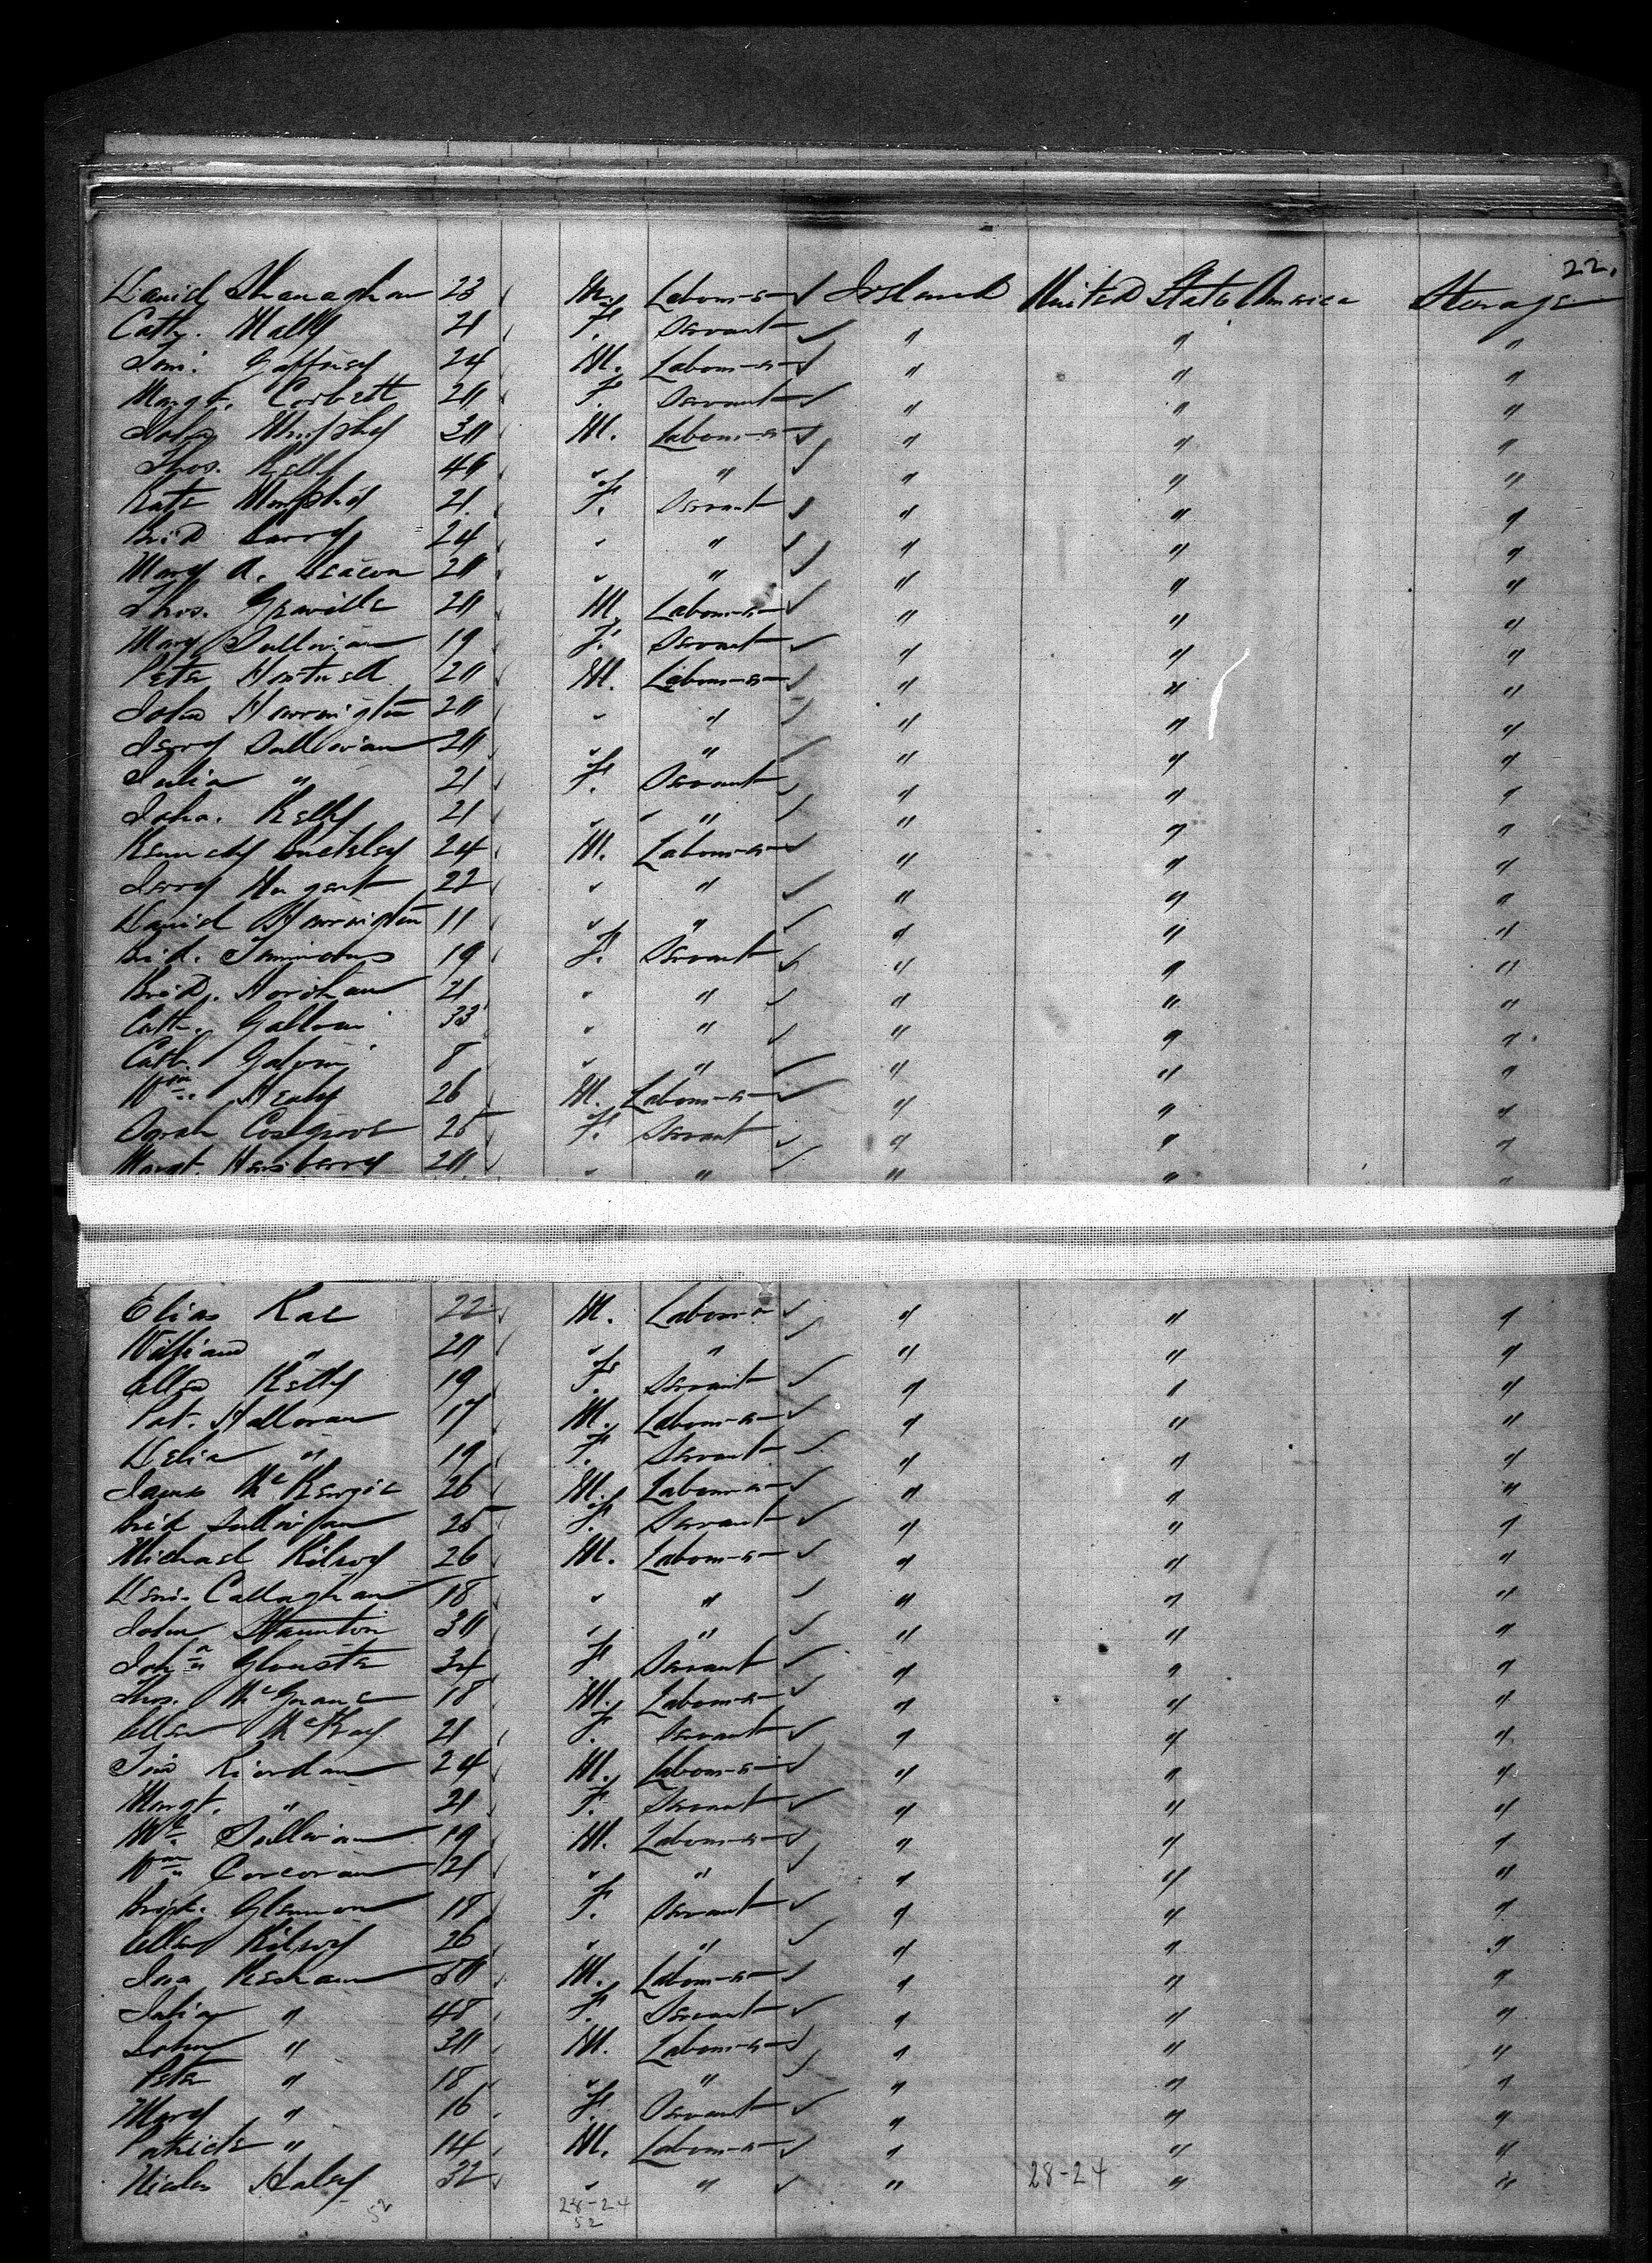 22.
David Shanaghan 23 M. Labourer Ireland United States America Steerage
Cath. Mally 21 F. Servant " " "
Jam. Gaffney 24 M. Labourer " " "
Margt. Corbett 20 F. Servant " " "
John Murphy 30 M. Labourer " " "
Thos. Kelly 40 " " " " "
Kate Murphy 21 F. Servant " " "
Brid 24 " " " " "
Mary A. Deacon 20 " " " " "
Thos. Greville 20 M. Labourer " " "
Mary Sullivan 19 F. Servant " " "
Peter Hartnell 20 M. Labourer " " "
John Harrington 20 " " " " "
Jerry Sullivan 20 " " " " "
Julia " 21 F. Servant " " "
Joha. Kelly 21 " " " " "
Kennedy 24 M. Labourer " " "
Jerry Nugent 22 " " " " "
Daniel Harrington 11 " " " " "
Brid. Timmons 19 F. Servant " " "
Brid. Horihan 21 " " " " "
Cath. 33 " " " " "
Cath. 8 " " " " "
Wm. Healy 26 M. Labourer " " "
Sarah Cosgrove 25 F. Servant " " "
Margt. Hansberry 20 " " " " "
Elias Rae 22 M. Labourer " " "
William " 20 " " " " "
Ellen Kelly 19 F. Servant " " "
Pat. Halloran 17 M. Labourer " " "
Delia " 19 F. Servant " " "
James McKenzie 26 M. Labourer " " "
Brid Sullivan 25 F. Servant " " "
Michael Kilroy 26 M. Labourer " " "
Denis. Callaghan 18 " " " " "
John Staunton 30 " " " " "
Joha Glouster 34 F. Servant " " "
Thos. McGrane 18 M. Labourer " " "
Ellen McKay 21 F. Servant " " "
Tim Riordan 24 M. Labourer " " "
Margt. " 21 F. Servant " " "
Sullivan 19 M. Labourer " " "
Wm Corcoran 21 " " " " "
Bridt. Glennon 18 F. Servant " " "
Ellen Kilroy 26 " " " " "
Keehan 50 M. Labourer " " "
Julia " 48 F. Servant " " "
John " 30 M. Labourer " " "
Peter " 18 " " " " "
Mary " 16 F. Servant " " "
Patrick " 14 M. Labourer " " "
Nicolas Haley 32 " " " 28-24 " "
52 28-24
52